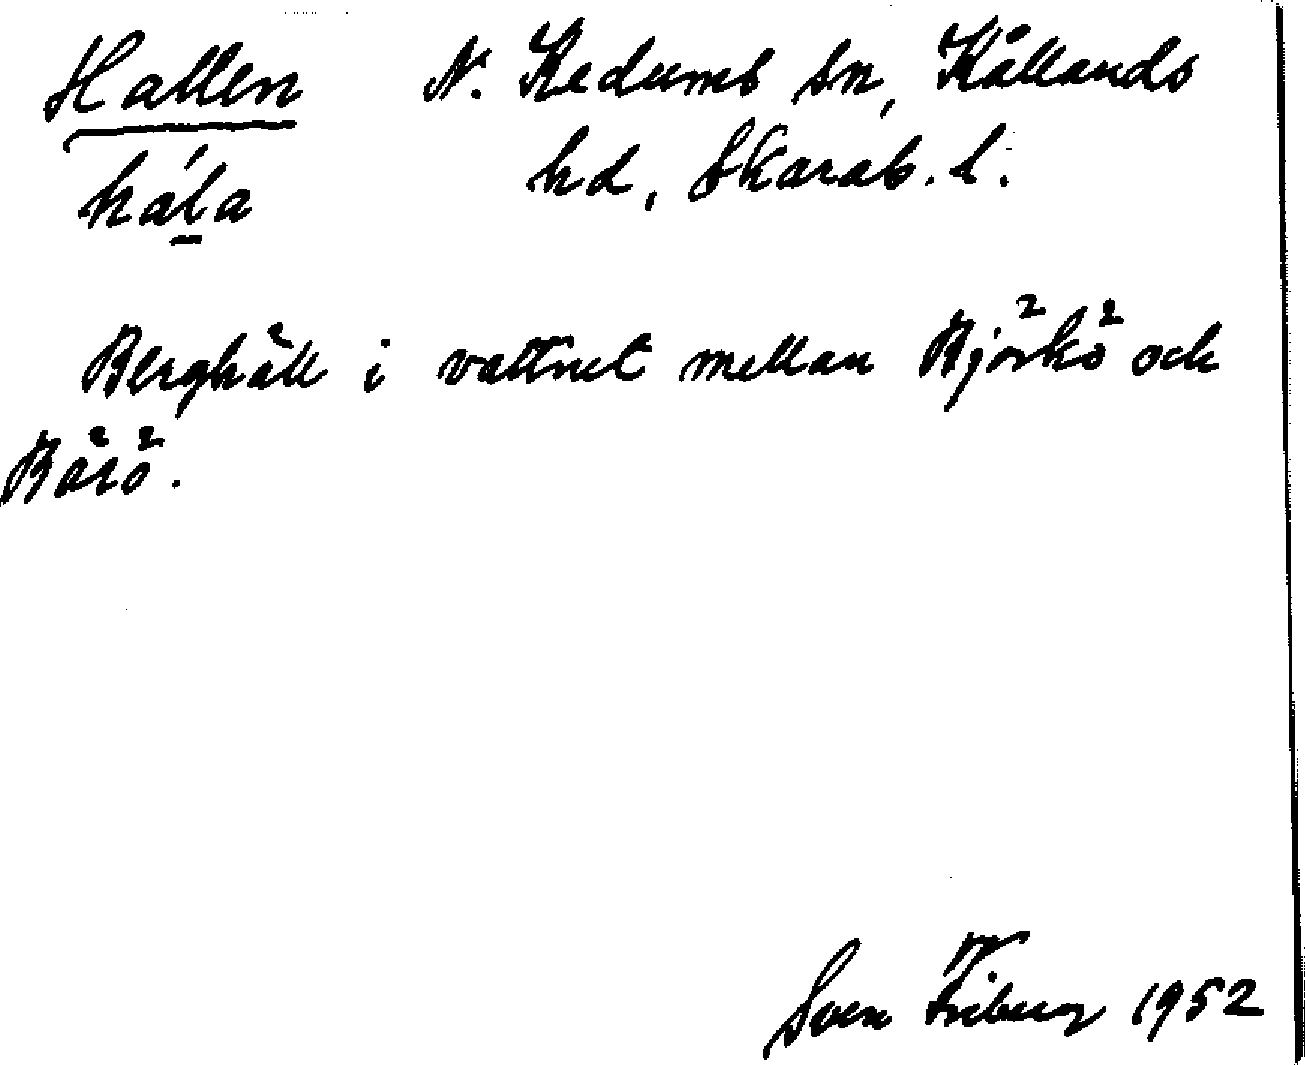 Hallen N. Kedums sn, Kållands
hála hd, Skarab. l.
Berghäll i vattnet mellan Björkö och
Bärö.
Sven Friberg 1952